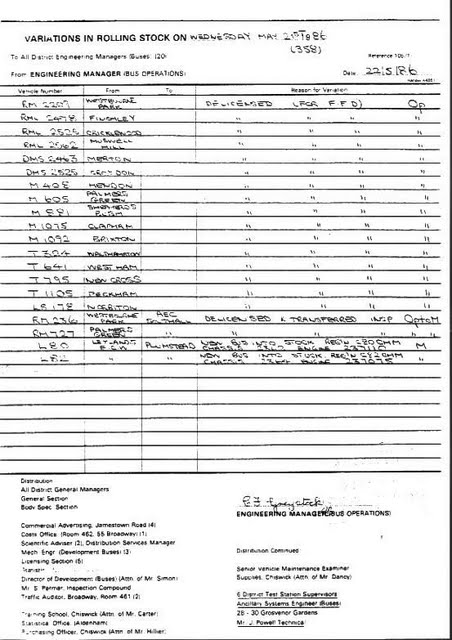 VARIATIONS IN ROLLING STOCK ON WEDNESDAY MAY 21ST 1986
(358)
To All District Engineering Managers (Buses) (20)
From ENGINEERING MANAGER (BUS OPERATIONS)
Date 22/5/86
Vehicle Number From To Reason for Variation
RM 2207 WESTBOURNE PARK DELICENSED (FOR F.F.D) Op
RML 2478 FINCHLEY " " "
RML 2525 CRICKLEWOOD " " "
RML 2662 MUSWELL HILL " " "
DMS 2463 MERTON " " "
DMS 2525 CROYDON " " "
M 408 HENDON " " "
M 605 PALMERS GREEN " " "
M 881 SHEPHERDS BUSH " " "
M 1075 CLAPHAM " " "
M 1092 BRIXTON " " "
T 324 WALTHAMSTOW " " "
T 641 WEST HAM " " "
T 795 NEW CROSS " " "
T 1105 PECKHAM " " "
LS 178 NORBITON " " "
RM 236 WESTBOURNE PARK AEC SOUTHALL DELICENSED & TRANSFERRED INSP Op to M
RM 727 PALMERS GREEN " " " "
L80 LEYLANDS E.C.W PLUMSTEAD NEW BUS INTO STOCK REGN C80CHM M
L82 " " NEW BUS INTO STOCK REGN C82CHM
Distribution
All District General Managers
General Section
Body Spec Section
Commercial Advertising, Jamestown Road (4)
Costs Office (Room 462, 55 Broadway) (1)
Scientific Adviser (2), Distribution Services Manager
Mech Engr (Development Buses) (3)
Licensing Section (5)
Director of Development (Buses) (Attn. of Mr. Simon)
Mr. S. Parmar, Inspection Compound
Traffic Auditor, Broadway, Room 461 (2)
Training School, Chiswick (Attn. of Mr. Carter)
Statistical Office (Aldenham)
Purchasing Officer, Chiswick (Attn of Mr. Hillier)
ENGINEERING MANAGER (BUS OPERATIONS)
Distribution Continued
Senior Vehicle Maintenance Examiner
Supplies, Chiswick (Attn. of Mr. Dancy)
6 District Test Station Supervisors
Ancillary Systems Engineer (Buses)
28 - 30 Grosvenor Gardens
Mr. J. Powell Technical